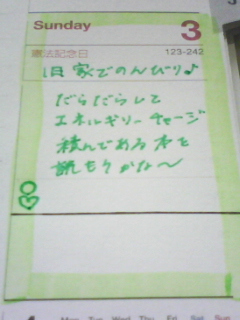 Sunday 3
憲法記念日 123-242
旧 家でのんびり♪
だらだらして
エネルギーチャージ
積んである本を
読もうかな〜
Mon Tue Wed Thu Fri Sat Sun